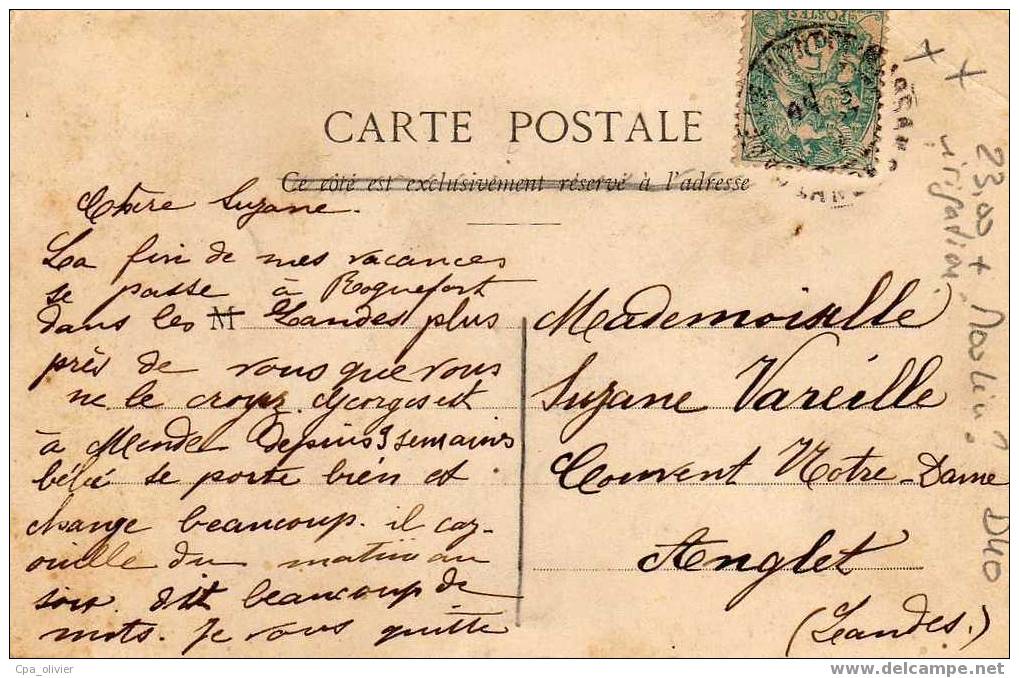 CARTE POSTALE
Ce côté est exclusivement réservé à l'adresse
Chère Suzane.
La fin de mes vacances
se passe à Roquefort
dans les M Landes plus
près de vous que vous
ne le croyez. Georges est
à Mende depuis 3 semaines
bébé se porte bien et
change beaucoup. il gaz-
ouille du matin au
soir. dit beaucoup de
mots. Je vous quitte
Mademoiselle
Suzane Vareille
Couvent Notre-Dame
Anglet
(Landes.)
5
POSTES
23,00 +
irrigation
D40
Cpa_olivier
www.delcampe.net